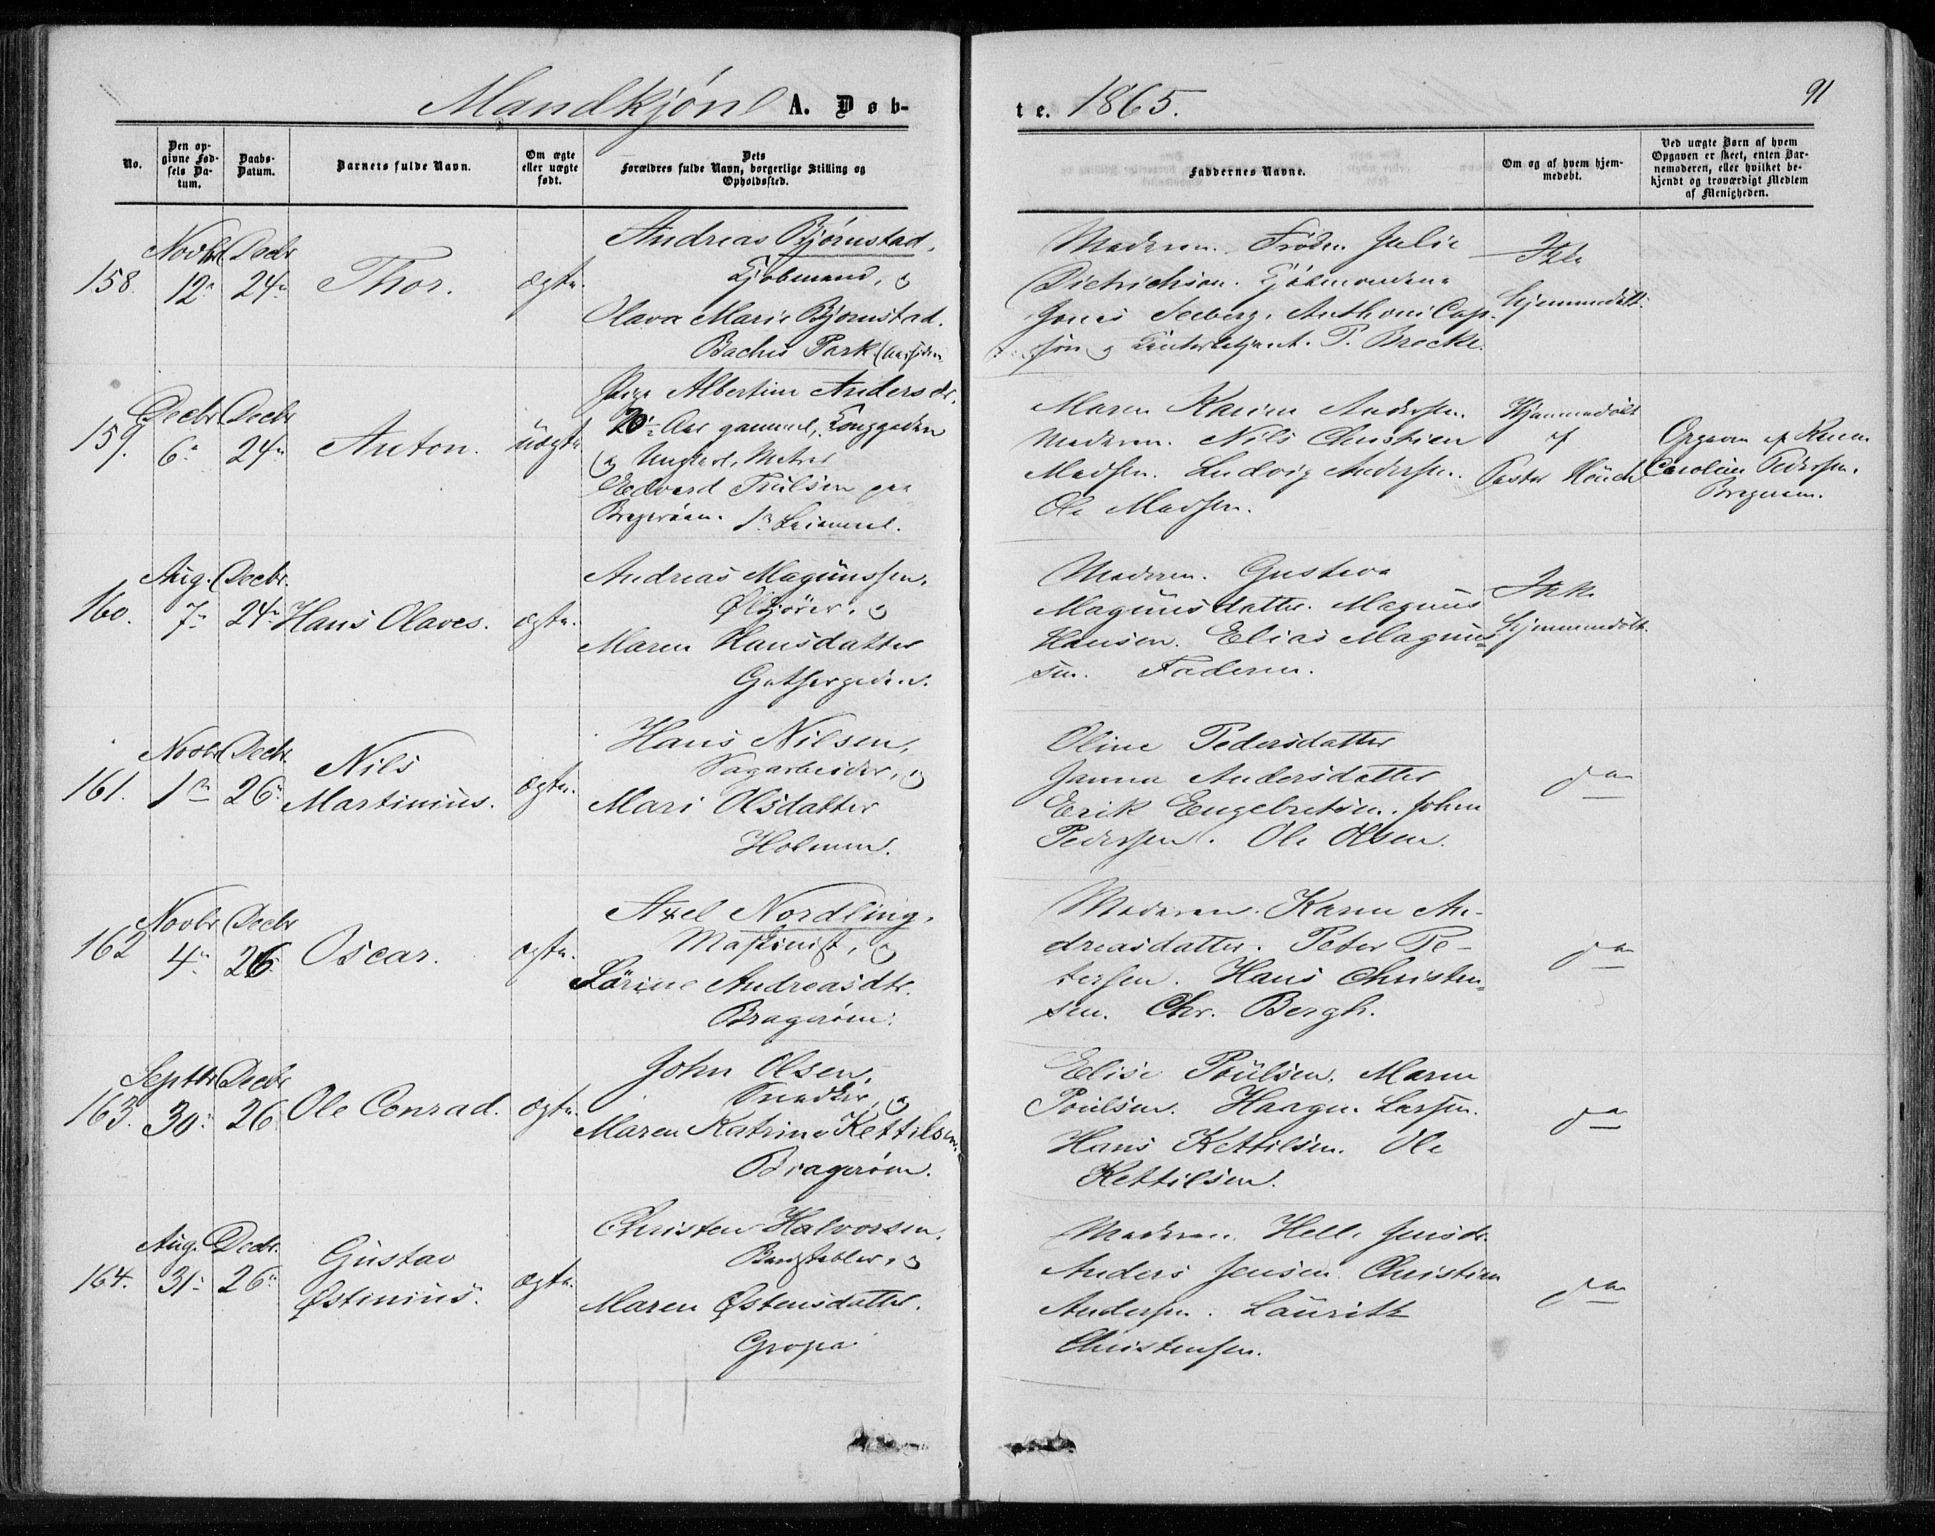 Mandkjøn A. Døb-
te. 1865.
91
No.
Den op-
givne Fød-
sels Da-
tum.
Daabs-
Datum.
Barnets fulde Navn.
Om ægte
eller uægte
født.
Dets
Forældres fulde Navn, borgerlige Stilling og
Opholdssted.
Faddernes Navne.
Om og af hvem hjem-
medøbt.
Ved uægte Børn af hvem
Opgaven er skeet, enten Bar-
nemoderen, eller hvilket be-
kjendt og troværdigt Medlem
af Menigheden.
158. Novbr 12 Decbr 24 Thor. ægte.
Andreas Bjørnstad,
Kjøbmand, og
Olava Marie Bjørnstad.
Baches Park
Moderen. Frøken Julie
Dietrichson. Kjøbmændene
Jones Seeberg, Anthoni Cap-
og P. Brocke.
Ikke
hjemmedøbt.
159. Decbr 6 Decbr 24 Anton. uægte
Pige Albertine Andersdr.
20 Aar gammel,
og Ungkarl,
Edvard Poulsen paa
Bragerøen.
Maren Karine Andersen.
Moderen. Nils Christian
Madsen. Ludvig Andersen.
Ole Madsen.
Hjemmedøbt
af
Pastor Münch
Opgaven af
Caroline Pedersen.
Bragerøen.
160. Aug. 7 Decbr. 24 Hans Olaves. ægte.
Andreas Magnussen,
og
Maren Hansdatter
Moderen. Gustava
Magnusdatter. Magnus
Hansen. Elias Magnus-
sen. Faderen.
Ikke
hjemmedøbt.
161. Novbr 1 Decbr 26 Nils
Martinius. ægte.
Hans Nilsen,
Sagarbeider, og
Mari Olsdatter
Holmen.
Oline Pedersdatter
Janna Andersdatter
Erik Engebretsen. John
Pedersen. Ole Olsen.
do
162 Novbr 4 Decbr 26 Oscar. ægte.
Axel Nordling,
Maskinist, og
Lorine Andreasdtr.
Bragerøen.
Moderen. Karen An-
dreasdatter. Peter Pe-
tersen. Hans Christen-
sen. Chr. Bergh.
do
163. Septbr 30 Decbr 26 Ole Conrad. ægte.
John Olsen,
Snedker, og
Maren Katrine Kettilsen.
Bragerøen.
Elise Poulsen. Maren
Poulsen. Haagen Larsen.
Hans Kettilsen. Ole
Kettilsen.
do
164. Aug. 31 Decbr. 26 Gustav
Østinius. ægte.
Christen Halvorsen,
og
Maren Østensdatter.
Gropa
Moderen. Helle Jensdr.
Anders Jensen. Christian
Andersen. Lauritz
Christensen.
do